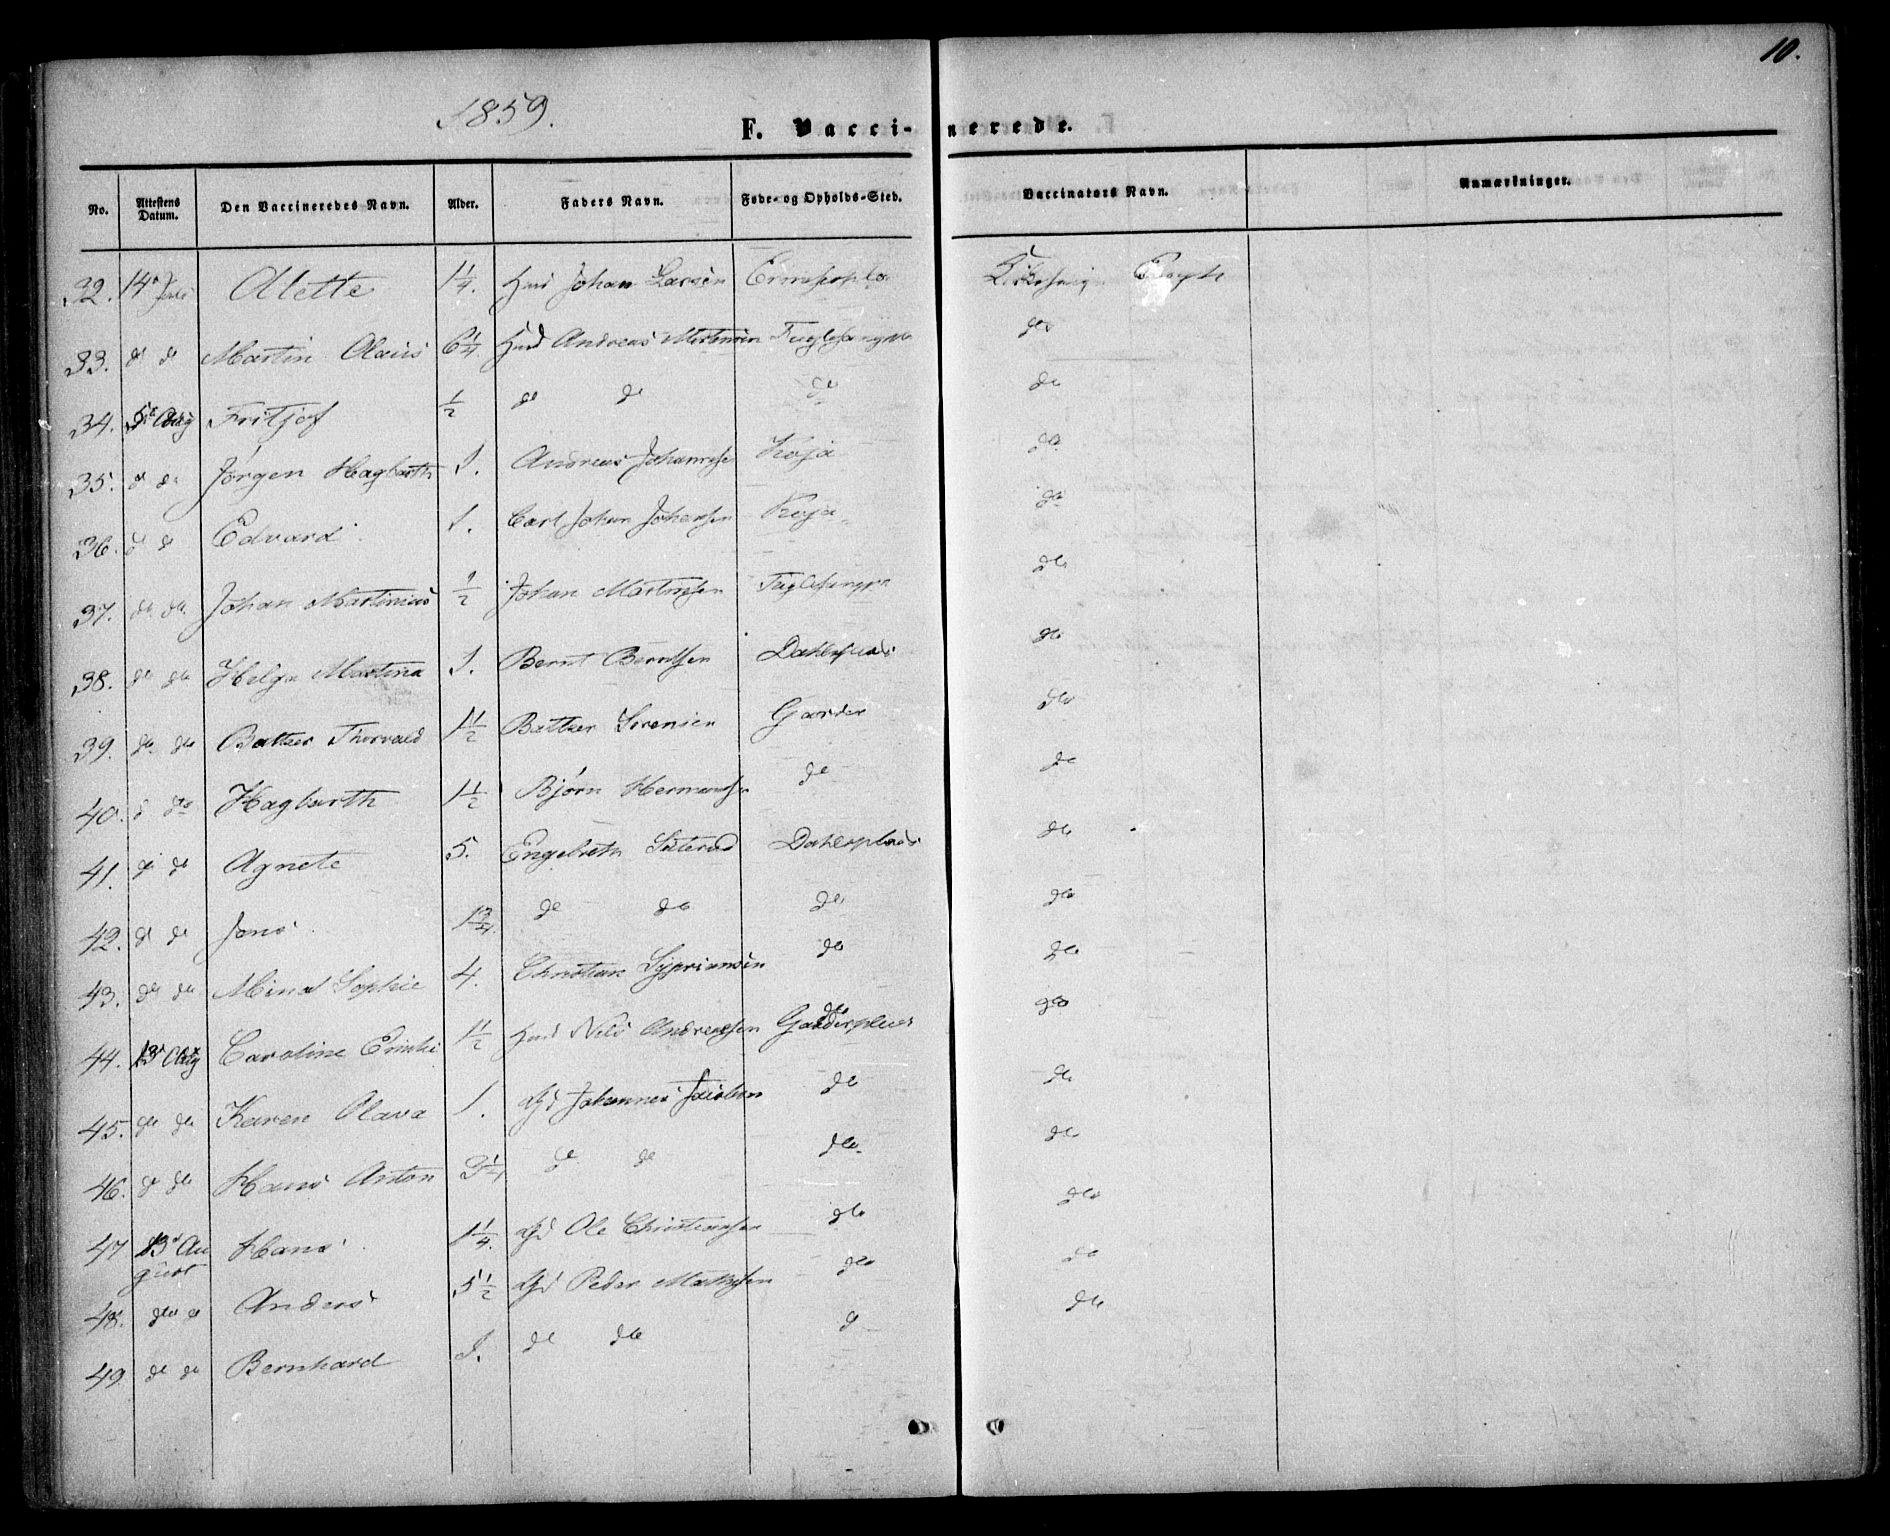 10.
1859.
F. Vaccinerede.
No. Attestens Datum. Den Vaccineredes Navn. Alder. Faders Navn. Føde- og Opholds-Sted. Vaccinators Navn. Anmærkninger.
32. 14de Juli Alette 1 1/4. Huusmd Johan Larsen
33. do do Martin Olaus 6 1/4 Huusmd Andreas Mortensen do
34. 5te Aug Fritjof 1/2 do do do do
35. do do Jørgen Hagbarth 1. Andreas Johannesen Roja do
36. do do Edvard 1. Carl Johan Johansen Roja do
37. do do Johan Martinius 1/2 Johan Martinsen do
38. do do Helga Martina 1. Bernt Berntsen do
39. do do Baltzer Thorvald 1 1/2 Baltzer Sørensen Garder do
40. do do Hagbarth 1 1/2 Bjørn Hermansen do do
41. do do Agnete 5. Engebreth Dahlsplads do
42. do do Jens 1 3/4. do do do do
43. do do Mina Sophie 4. Christian Syprianssen do do
44. 13de Aug Caroline Emilie 1 1/2 Huusmd Nils Andreassen Garderplads do
45. do do Karen Olava 1. Johannes Jacobsen do do
46. do do Hans Anton 3 1/4 do do do do
47 13de August Hans 1 1/4. Ole Christiansen do do
48. do do Anders 5 1/2 Peder Mathisen do do
49 do do Bernhard 1. do do do do